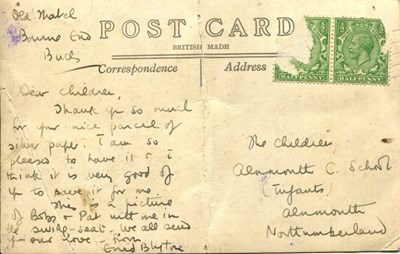 Old Thatch
Bourne End
Bucks
POST CARD
BRITISH MADE
Correspondence
Address
HALFPENNY
HALFPENNY
Dear children,
Thank you so much
for your nice parcel of
silver paper. I am so
pleased to have it & I
think it is very good of
you to save it for me.
This is a picture
of Bobs & Pat with me in
the swing-seat. We all send
you our love. from
Enid Blyton
The Children,
Alnmouth C. School
(Infants)
Alnmouth
Northumberland